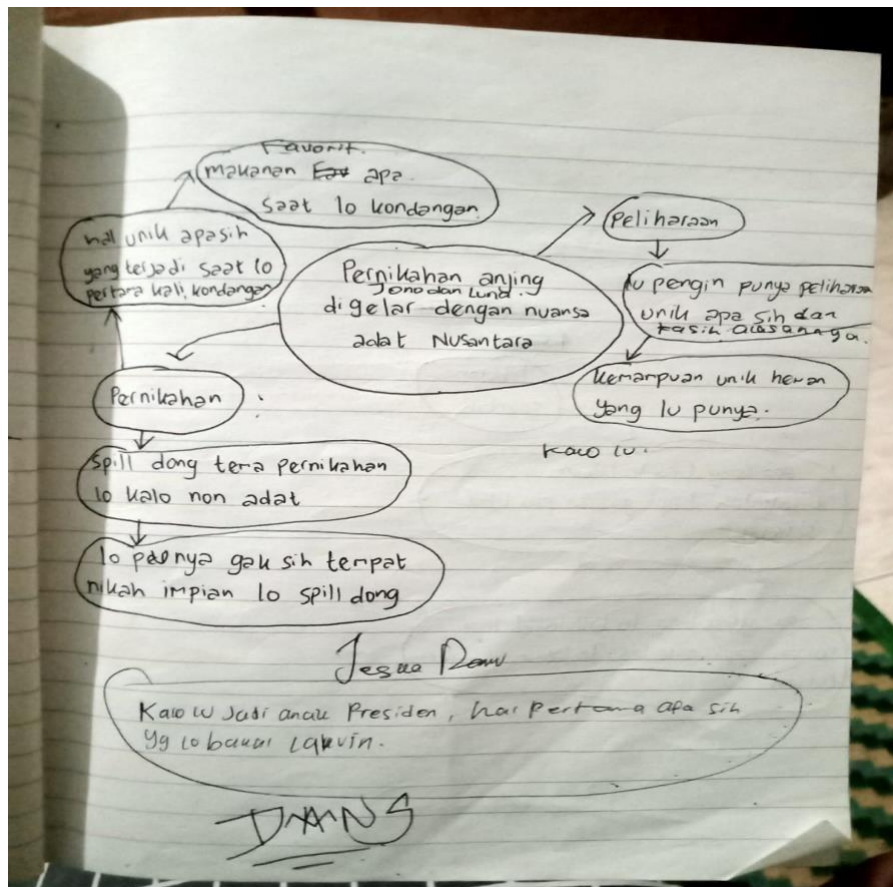 Favorit.
makanan apa
saat lo kondangan
hal unik apasih
yang terjadi saat lo
pertama kali, kondangan
Pernikahan anjing
Jono dan Luna.
di gelar dengan nuansa
adat Nusantara
Peliharaan
lu pengin punya peliharaan
unik apa sih dan
kasih alasannya.
kemampuan unik hewan
yang lu punya.
Kalo lu.
Pernikahan
Spill dong tema pernikahan
lo kalo non adat
lo punya gak sih tempat
nikah impian lo spill dong
Kalo lu Jadi anak Presiden, hal Pertama apa sih
Yg lo bakal lakuin.